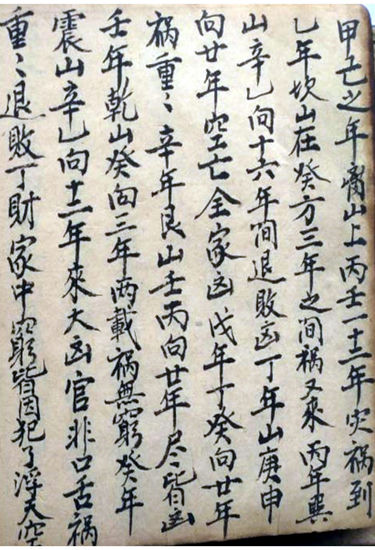 甲亡之年离山上丙壬一十二年灾禍到
乙年坎山在癸方三年之间祸又來丙年巽
山辛乙向十六年间退敗凶丁年山庚申
向廿年空亡全家凶戊年丁癸向廿年
祸重〻辛年艮山壬丙向廿年尽皆凶
壬年乾山癸向三年两載祸無窮癸年
震山辛乙向十二年來大凶官非口舌祸
重〻退敗丁財家中窮皆因犯了浮天空